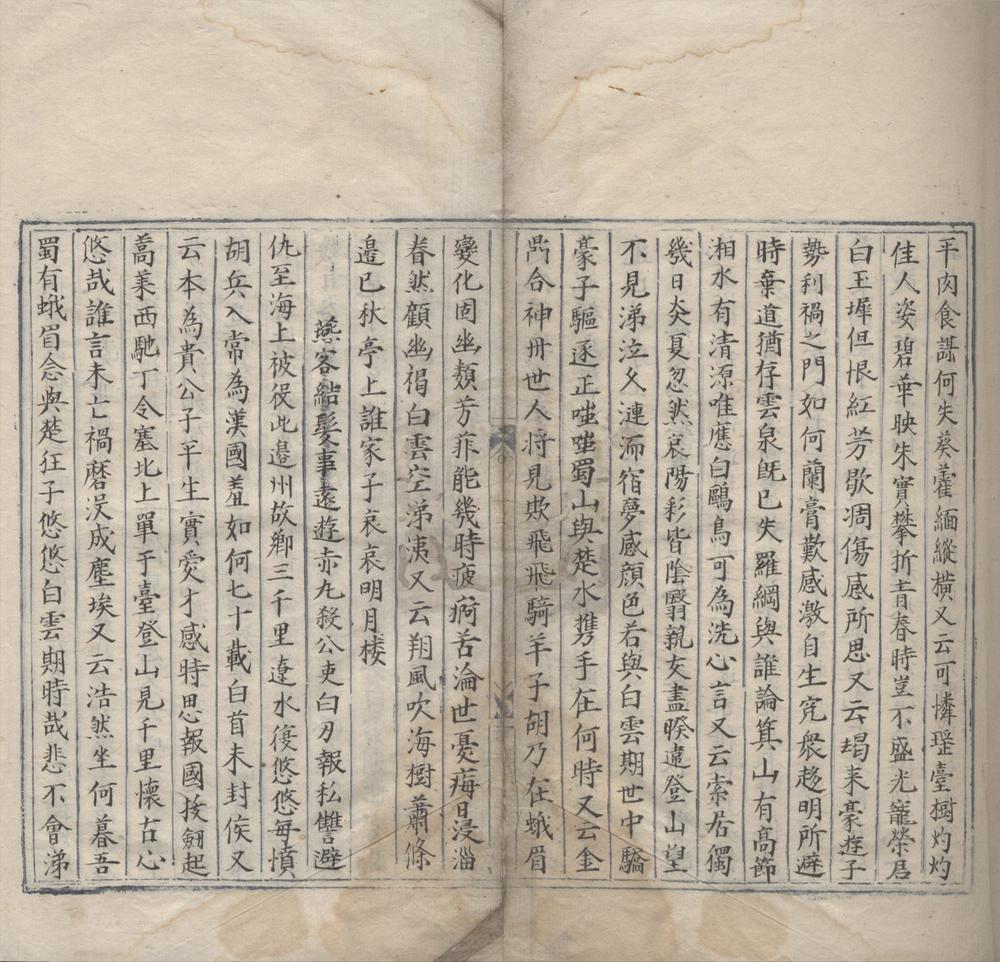 平肉食謀何失葵藿緬縱橫又云可憐瑤臺樹灼灼
佳人姿碧華映朱實攀折青春時豈不盛光寵榮居
白玉墀但恨紅芳歇凋傷感所思又云朅来豪遊子
勢利禍之門如何蘭膏歎感激自生寃衆趍明所避
時棄道猶存雲泉旣已失羅網與誰論箕山有高節
湘水有清源唯應白鷗鳥可為洗心言又云索居獨
幾日炎夏忽然衰陽彩皆陰翳親友盡暌違登山望
不見涕泣久漣洏宿夢感顔色若與白雲期世中驕
豪子驅逐正嗤嗤蜀山與楚水携手在何時又云金
鼎合神丹世人将見欺飛飛騎羊子胡乃在蛾眉
變化固幽類芳菲能幾時疲痾苦淪世憂痗日浸淄
眷然顧幽褐白雲空涕洟又云翔風吹海樹蕭條
邉已秋亭上誰家子哀哀明月楼
燕客結髮事遠遊赤丸殺公吏白刃報私讐避
仇至海上被役此邉州故鄉三千里遼水復悠悠每憤
胡兵入常為漢國羞如何七十載白首未封侯又
云本為貴公子平生實愛才感時思報國拔劒起
蒿莱西馳丁令塞北上單于臺登山見千里懷古心
悠哉誰言未亡禍磨滅成塵埃又云浩然坐何暮吾
蜀有蛾眉念與楚狂子悠悠白雲期時哉悲不會涕